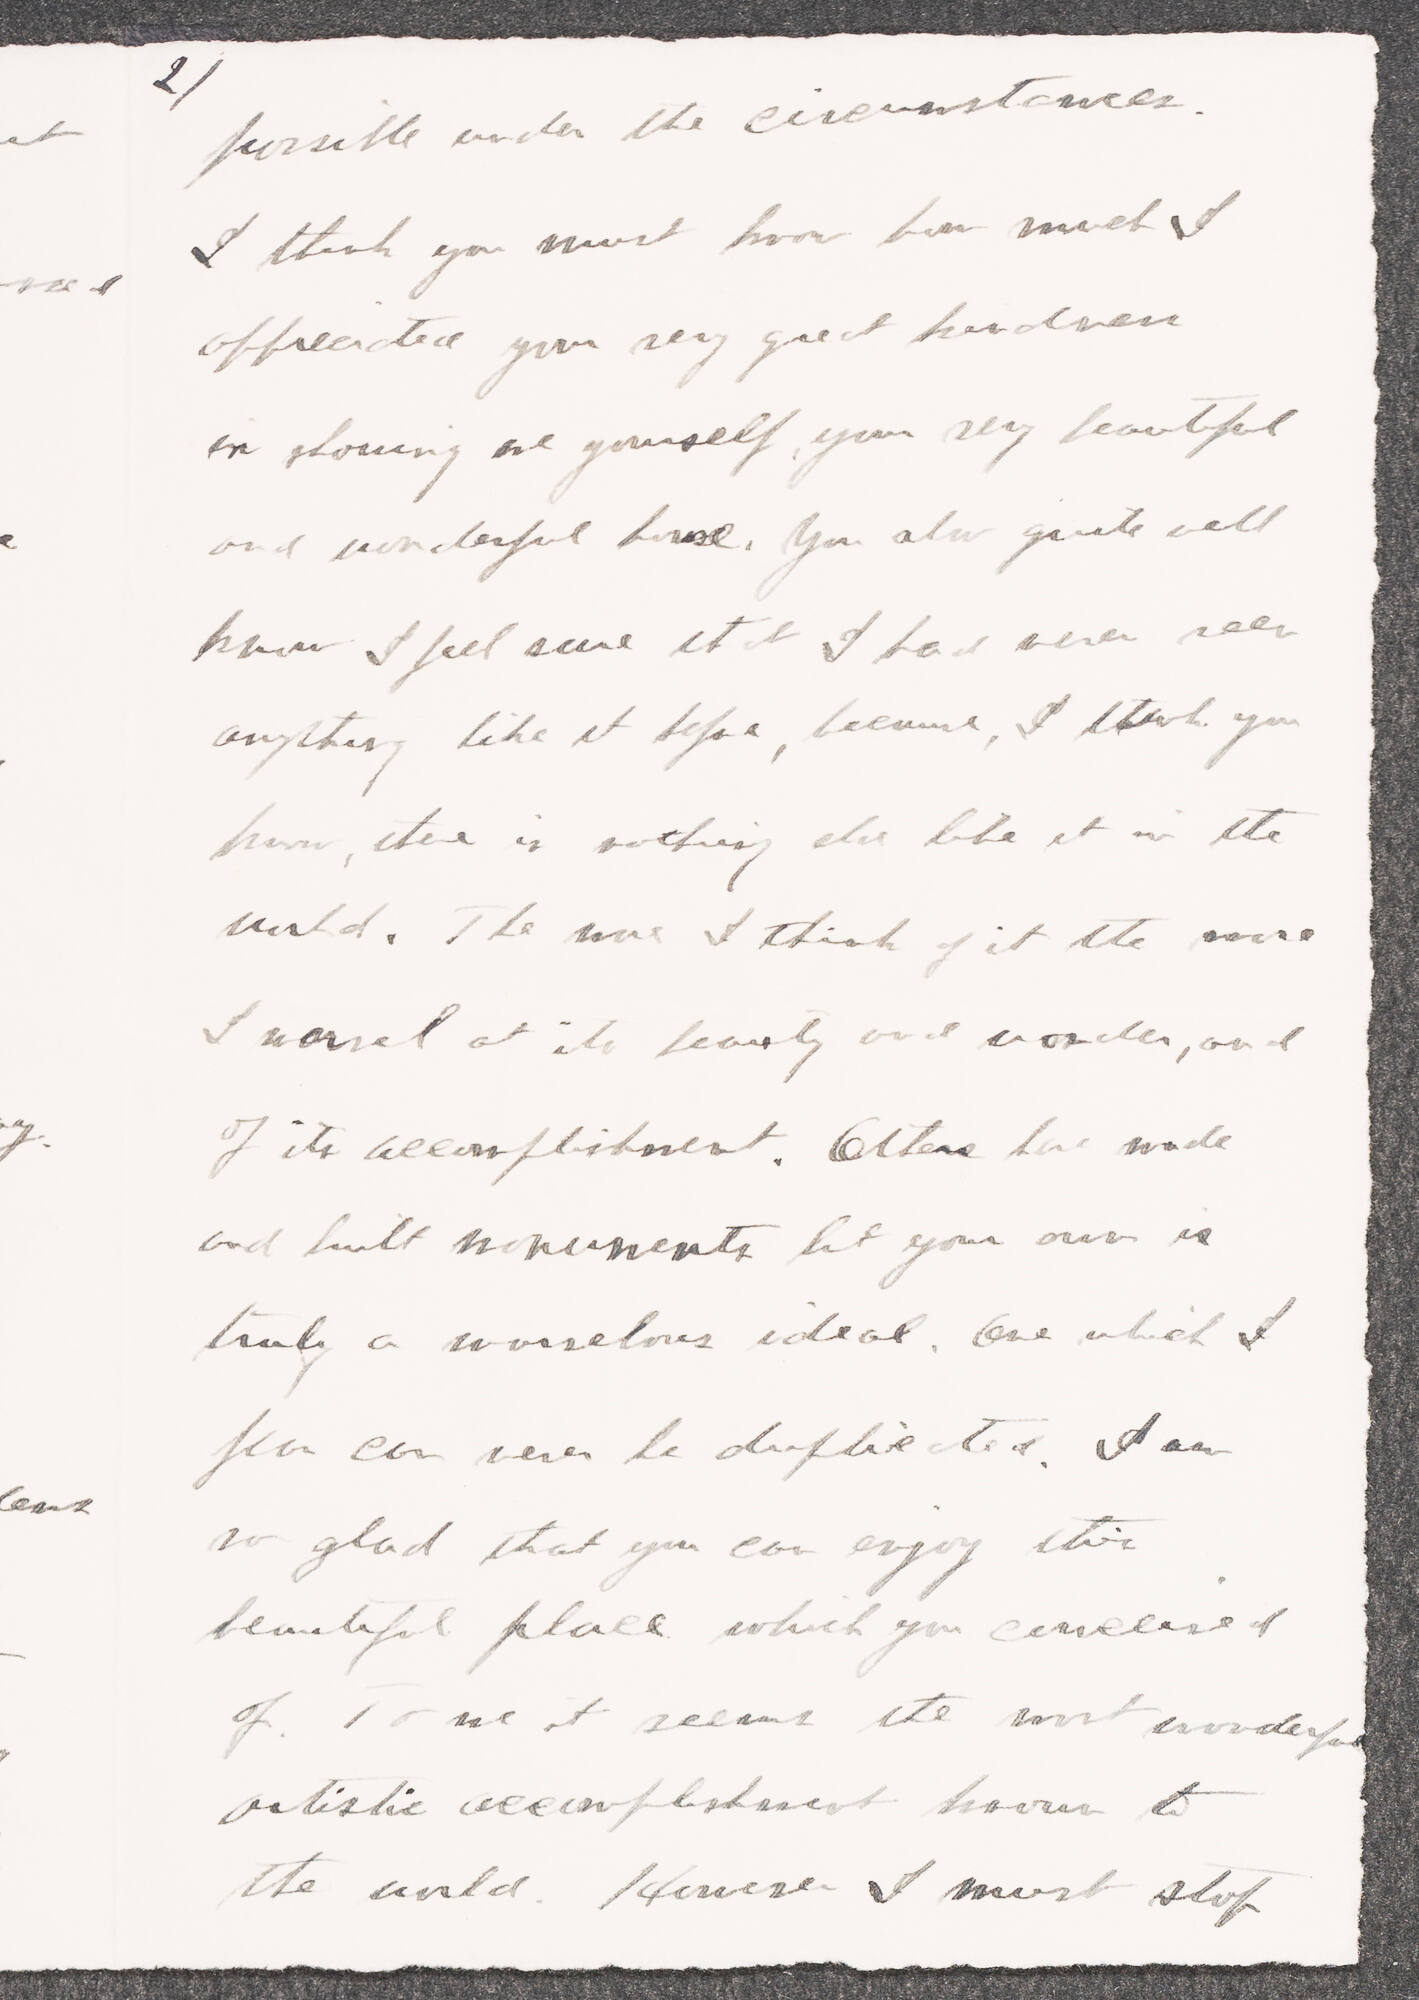 2/
possible under the circumstances.
I think you must know how much I
appreciated your very great kindness
in showing me yourself, your very beautiful
and wonderful house. You also quite well
know I feel sure that I had never seen
anything like it before, because, I think you
know, there is nothing else like it in the
world. The more I think of it the more
I marvel at its beauty and wonder, and
of its accomplishment. Others have made
and built monuments but your own is
truly a marvelous ideal. One which I
fear can never be duplicated. I am
so glad that you can enjoy this
beautiful place which you conceived
of. To me it seems the most wonderful
artistic accomplishment known to
the world. However I must stop